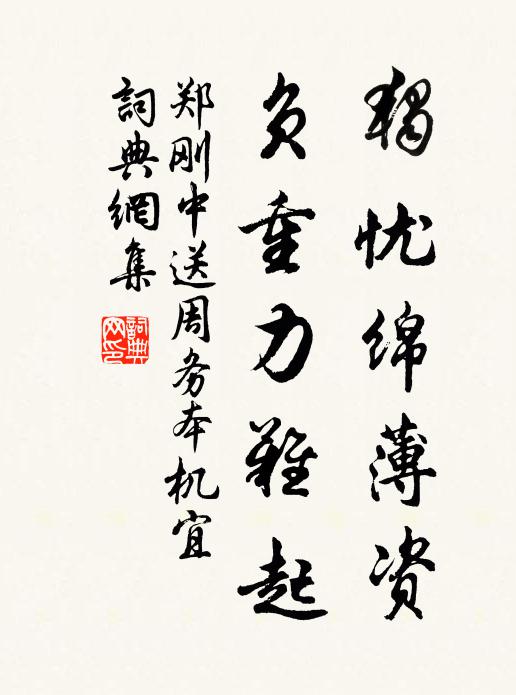 独忧绵薄资
负重力难起
郑刚中送周务本机宜
詞典網集
詞典网印